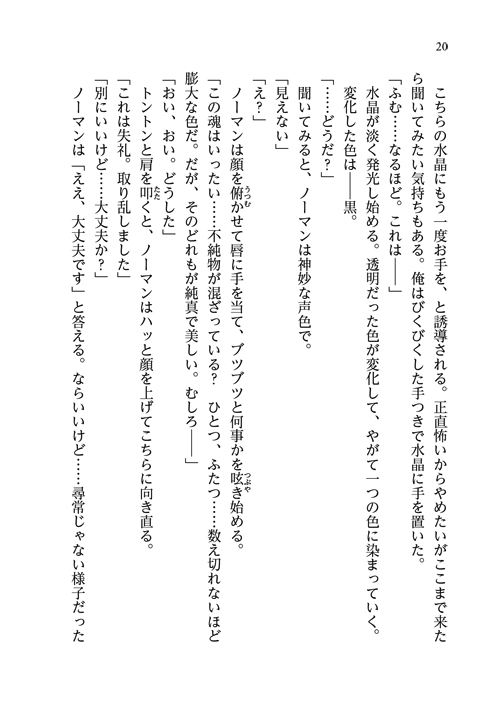 20
こちらの水晶にもう一度お手を、と誘導される。正直怖いからやめたいがここまで来た
ら聞いてみたい気持ちもある。俺はびくびくした手つきで水晶に手を置いた。
「ふむ……なるほど。これは――」
水晶が淡く発光し始める。透明だった色が変化して、やがて一つの色に染まっていく。
変化した色は――黒。
「……どうだ？」
聞いてみると、ノーマンは神妙な声色で。
「見えない」
「え？」
ノーマンは顔を俯かせて唇に手を当て、ブツブツと何事かを呟き始める。
「この魂はいったい……不純物が混ざっている？　ひとつ、ふたつ……数え切れないほど
膨大な色だ。だが、そのどれもが純真で美しい。むしろ――」
「おい、おい。どうした」
トントンと肩を叩くと、ノーマンはハッと顔を上げてこちらに向き直る。
「これは失礼。取り乱しました」
「別にいいけど……大丈夫か？」
ノーマンは「ええ、大丈夫です」と答える。ならいいけど……尋常じゃない様子だった